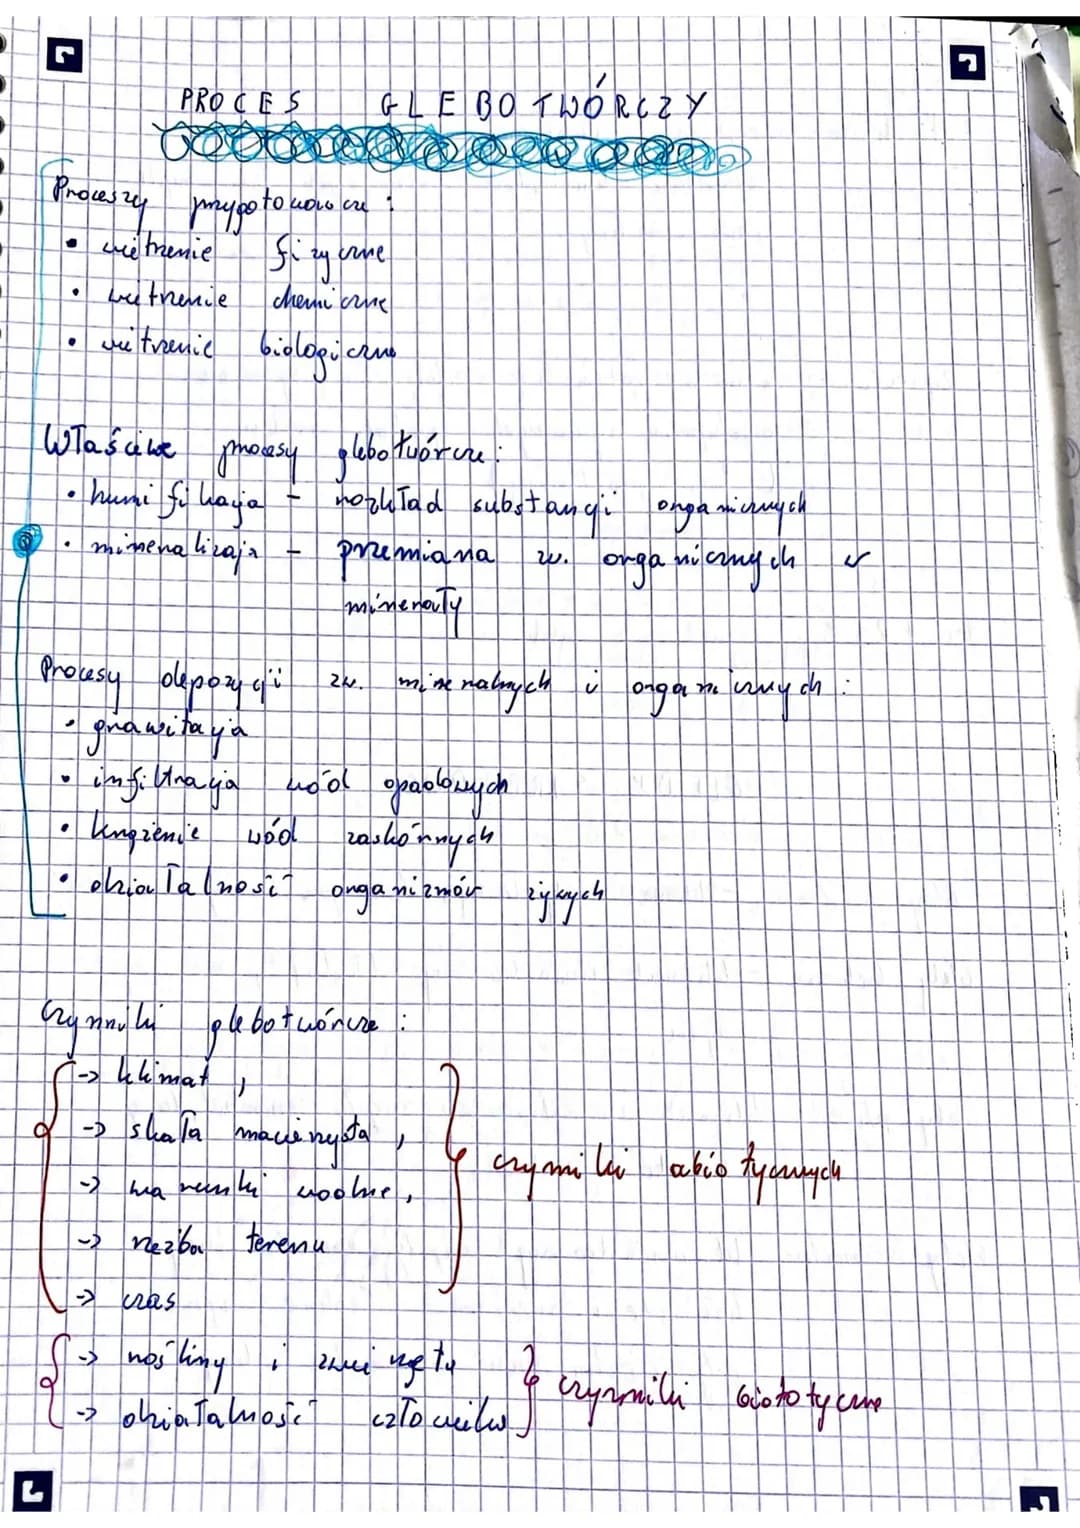 PROCES GLEBOTWÓRCZY
Proceszy przygotowawcze :
• wietrzenie fizyczne
• wietrzenie chemiczne
• wietrzenie biologiczne
Właściwe procesy glebotwórcze :
• humifikacja - rozkład substancji organicznych
• mineralizacja - przemiana zw. organicznych w
minerały
Procesy depozycji zw. mineralnych i organicznych :
• grawitacja
• infiltracja wód opadowych
• krążenie wód zaskórnych
• działalność organizmów żywych
Czynniki glebotwórcze :
-> klimat ,
-> skała macierzysta ,
-> warunki wodne ,
-> rezba terenu
-> czas
czynniki abiotycznych
-> rośliny i zwierzęta
-> działalność człowieka
czynniki biototyczne